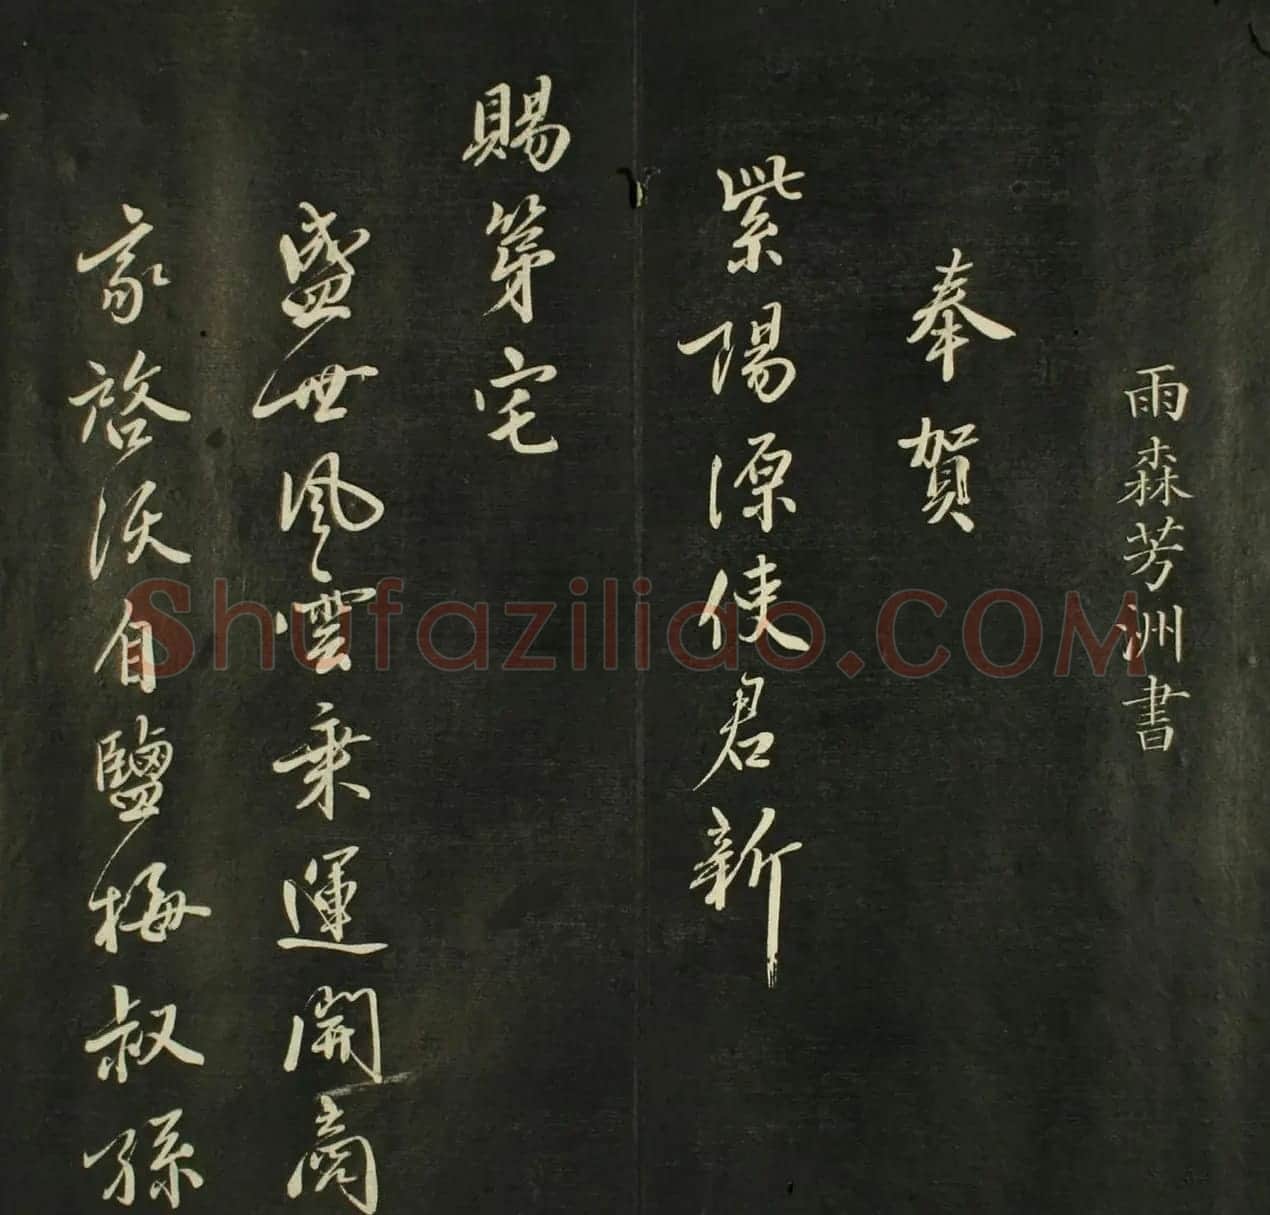 雨森芳洲書
奉賀
紫陽源使君新
賜第宅
盛世風雲乗運開商
家啓沃自鹽梅叔孫
Shufaziliao.COM